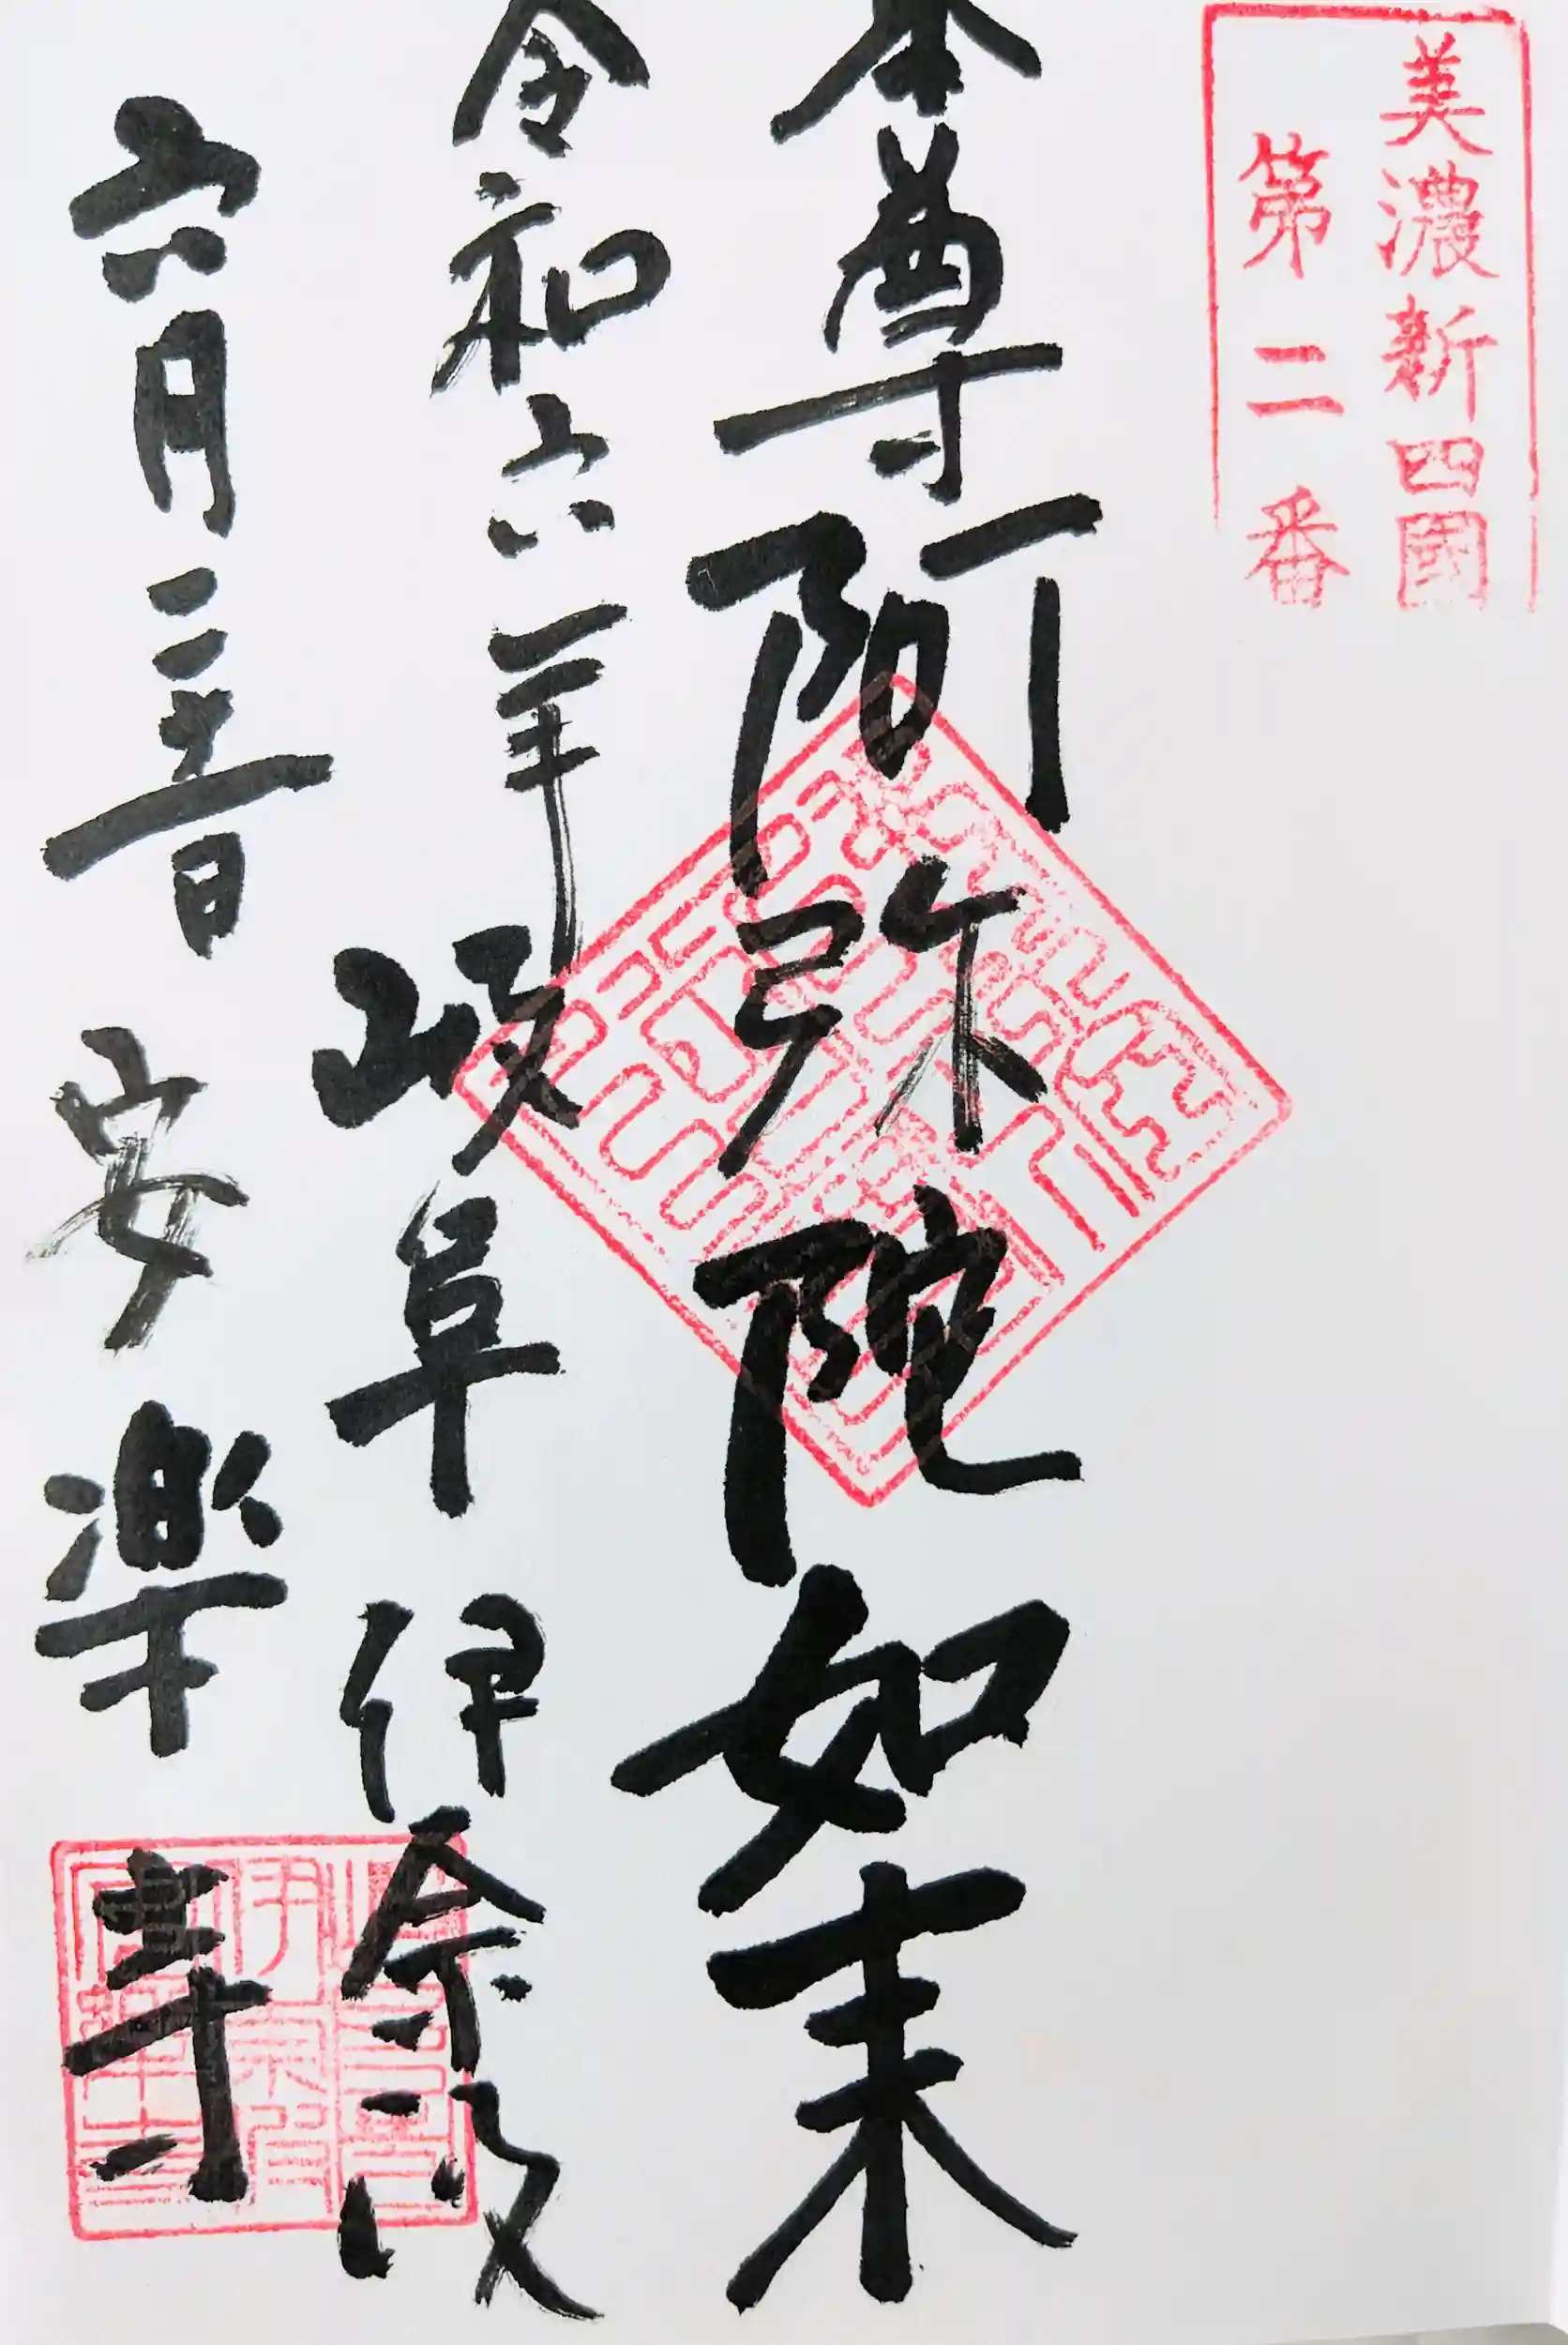 美濃新四國
第二番
本尊阿弥陀如来
令和六年
岐阜伊奈波
六月二十二日
安楽寺